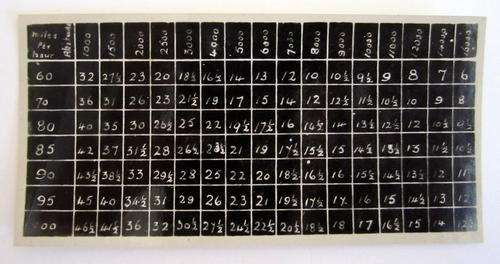 Miles Per hour Altitude 1000 1500 2000 2500 3000 4000 5000 6000 7000 8000 9000 10000 11000 12000
60 32 27½ 23 20 18½ 16½ 14 13 12 10 10½ 9½ 9 8 7 6
70 36 31 26 23 21½ 19 17 15 14 12 12½ 11½ 10½ 10 9 8
80 40 35 30 26½ 25 22 19½ 17½ 16 14½ 14 13½ 12½ 12 10½ 9½
85 42 37 31½ 28 26½ 23½ 21 19 17½ 15½ 15 14½ 13½ 13 11½ 10½
90 43½ 38½ 33 29½ 28 25 22 20 18½ 16½ 16 15½ 14½ 13½ 12 11
95 45 40 34½ 31 29 26 23 21 19½ 17½ 17 16 15 14½ 13
100 46½ 41½ 36 32 30½ 27½ 24½ 22½ 20½ 18½ 18 17 16½ 15 14 12½